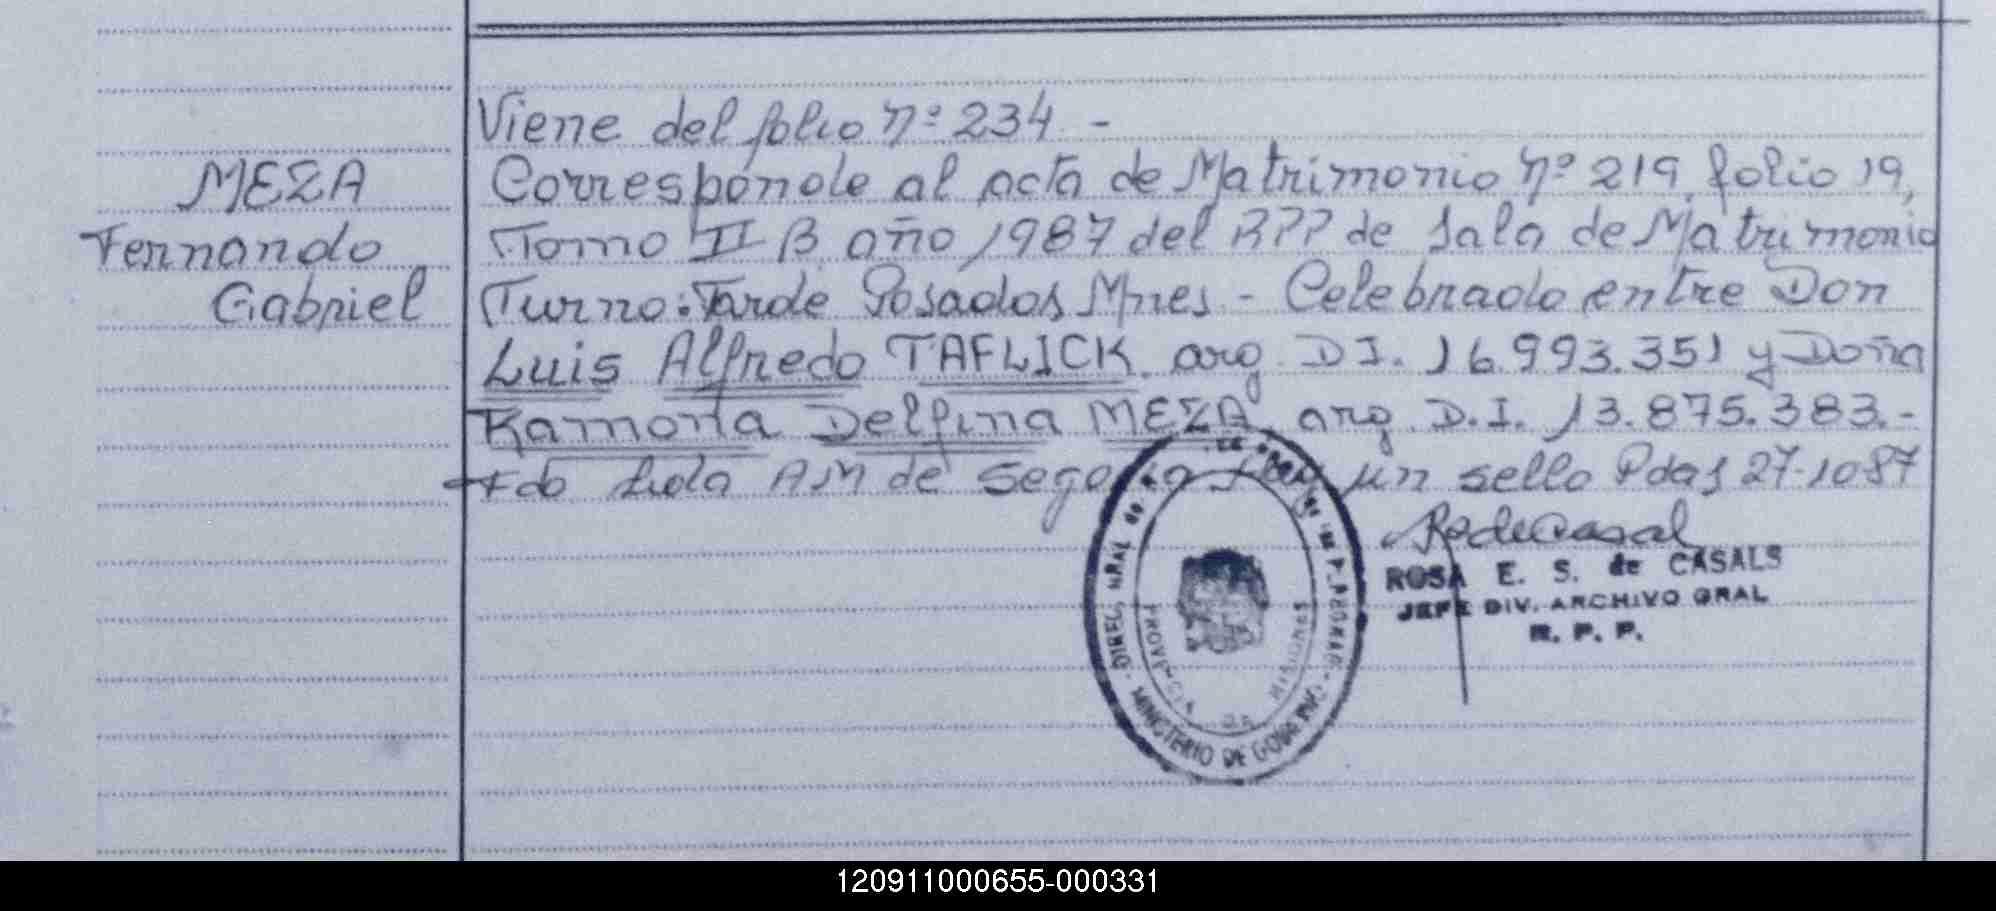 Viene del folio nº 234 -
MEZA
Fernando
Gabriel
Corresponde al acta de Matrimonio nº 219, folio 19,
Tomo II B año 1987 del RPP de Sala de Matrimonio
Turno: Tarde Posadas Mnes - Celebrado entre Don
Luis Alfredo TAFLICK arg. D I. 16.993.351 y Doña
Ramona Delfina MEZA arg. D.I. 13.875.383.-
Fdo Lida AM de Segovia Hay un sello Pdas 27-10 87
ROSA E. S. de CASALS
JEFE DIV. ARCHIVO GRAL
R. P. P.
DIREC. GRAL de
MINISTERIO DE GOBIERNO
PROVINCIA DE MISIONES
120911000655-000331